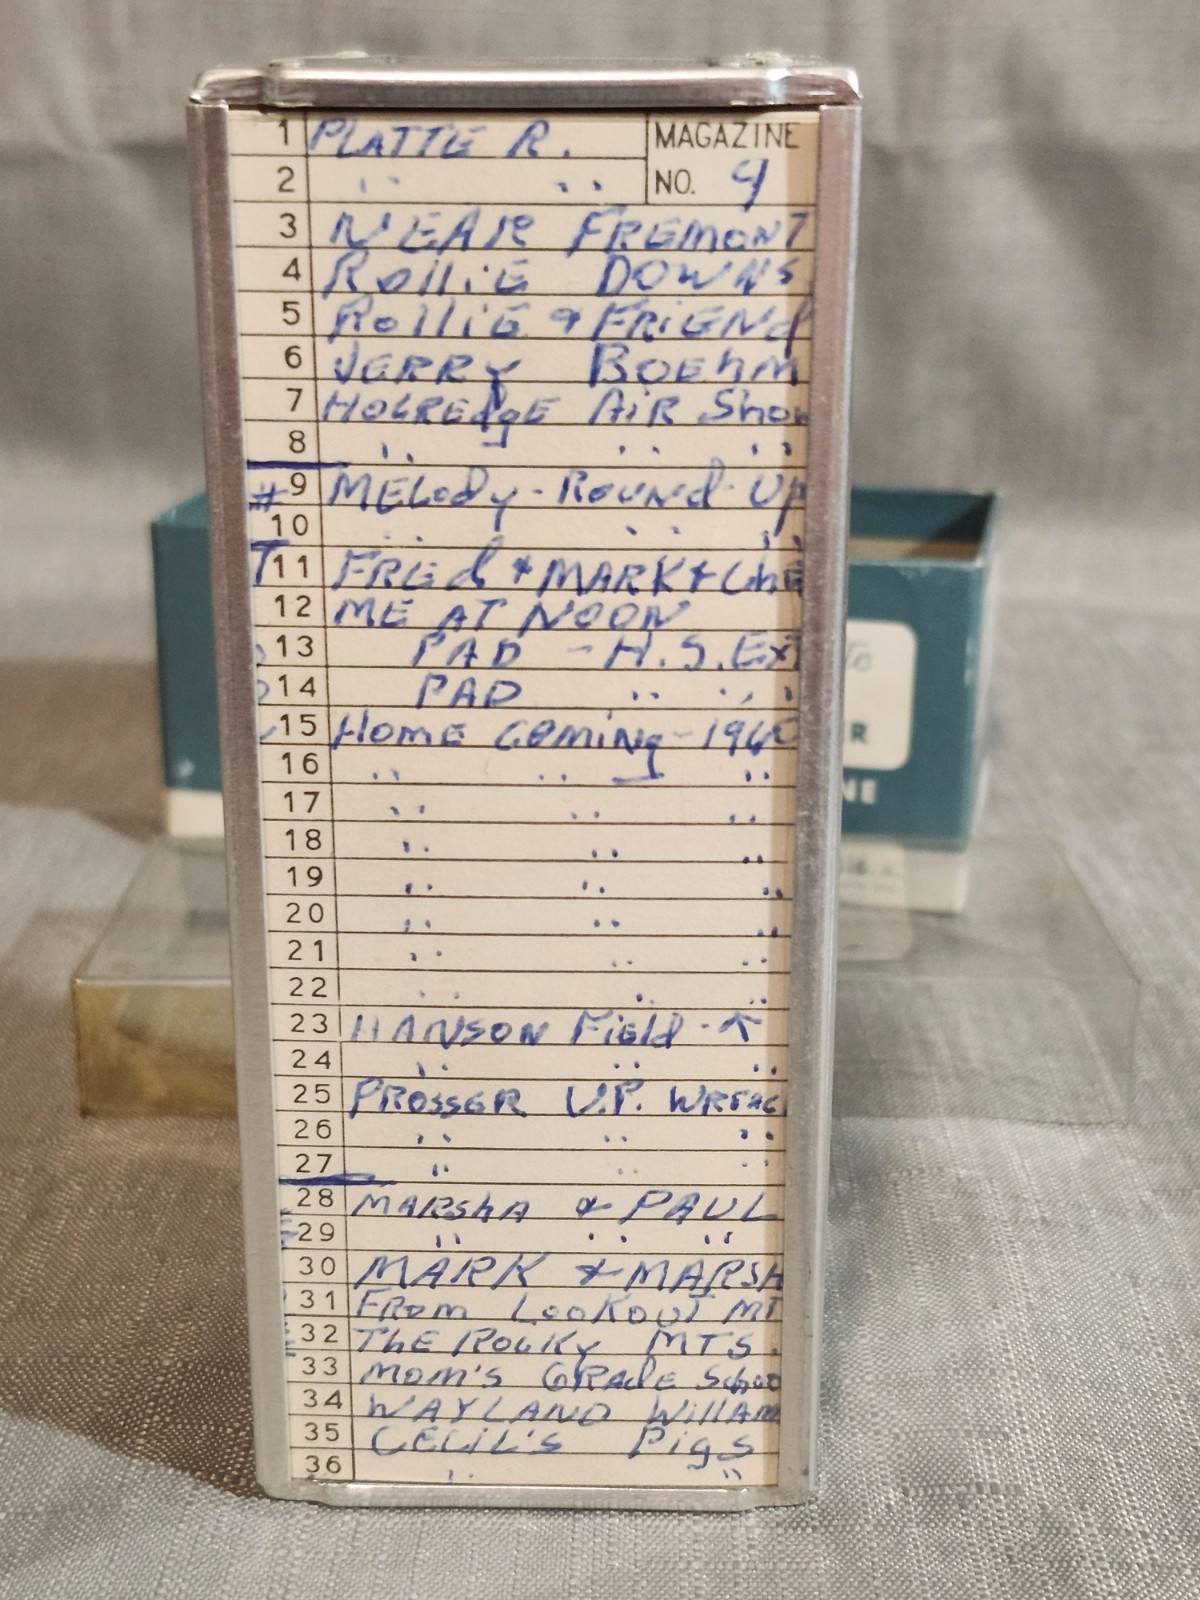 1 PLATTE R.
MAGAZINE
NO. 9
2 " "
3 NEAR FREMONT
4 Rollie DOWNS
5 Rollie & FRiENd
6 JERRY BOEhM
7 HOLREdgE AiR Show
8 " " "
# 9 MELody - RoUNd - Up
10 " " "
11 FREd & MARK & Che
12 ME AT NOON
13 PAD - H.S. Ext
14 PAD " " "
15 HomE Coming - 1960
16 " " "
17 " " "
18 " " "
19 " " "
20 " " "
21 " " "
22 " " "
23 HANSON FiEld - ↑
24 " " "
25 PROSSER U.P. WREAC
26 " " "
27 " " "
28 MARShA & PAUL
29 " " "
30 MARK & MARSH
31 FRom LooKoUT MT
32 ThE ROCKy MTS.
33 Mom's GRAdE Schoo
34 WAYLAND WillAm
35 CECiL's Pigs
36 " "
R
NE